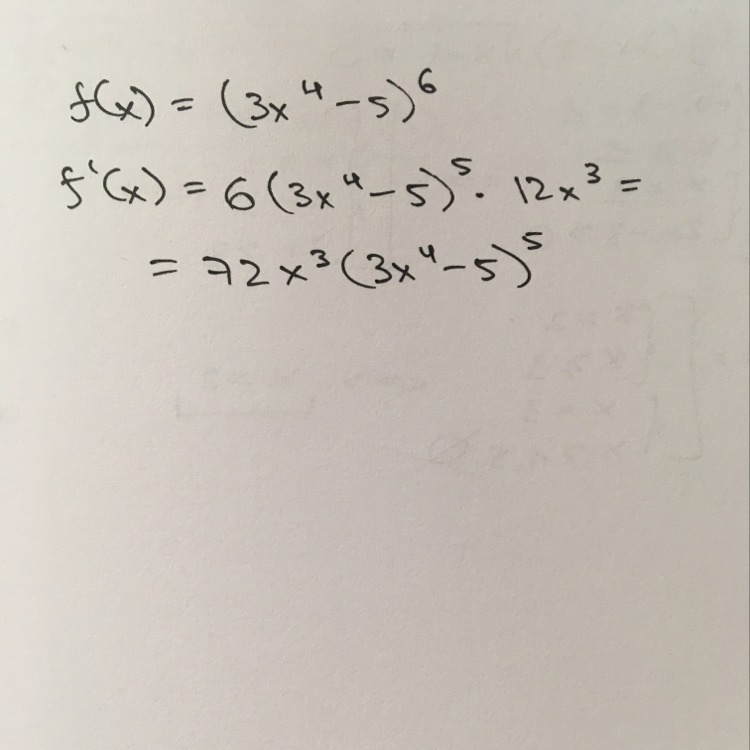 f(x) = (3x⁴ - 5)⁶
f'(x) = 6(3x⁴ - 5)⁵ · 12x³ =
= 72x³(3x⁴ - 5)⁵